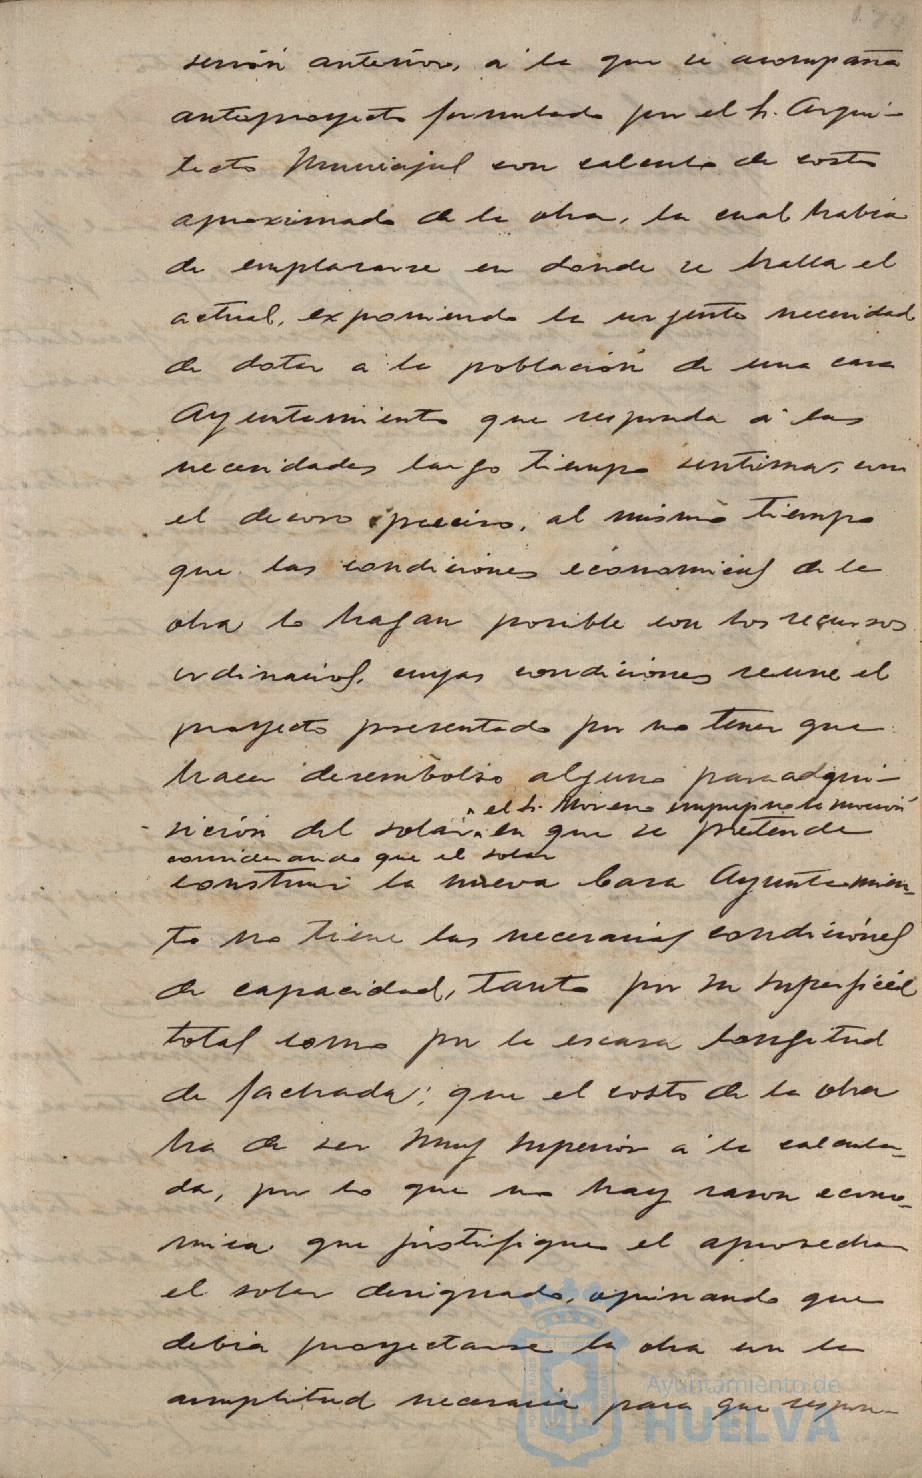 174
sesión anterior, á la que se acompaña
anteproyecto formulado por el Sr. Arqui-
tecto Municipal con calculo de costo
aproximado de la obra, la cual habia
de emplazarse en donde se halla el
actual, exponiendo la urgente necesidad
de dotar á la población de una casa
Ayuntamiento que responda á las
necesidades largo tiempo sentidas, con
el decoro preciso, al mismo tiempo
que las condiciones económicas de la
obra lo hagan posible con los recursos
ordinarios, cuyas condiciones reune el
proyecto presentado por no tener que
hacer desembolso alguno para adqui-
sición del solar. el Sr. Moreno impugna la moción
en que se pretende
considerando que el solar
construir la nueva Casa Ayuntamien-
to no tiene las necesarias condiciónes
de capacidad, tanto por su superficie
total como por la escasa longitud
de fachada; que el costo de la obra
ha de ser muy superior á la calcula-
da, por lo que no hay razon econo-
mica que justifique el aprovechar
el solar designado, opinando que
debia proyectarse la obra con la
amplitud necesaria para que respon-
Ayuntamiento de
HUELVA